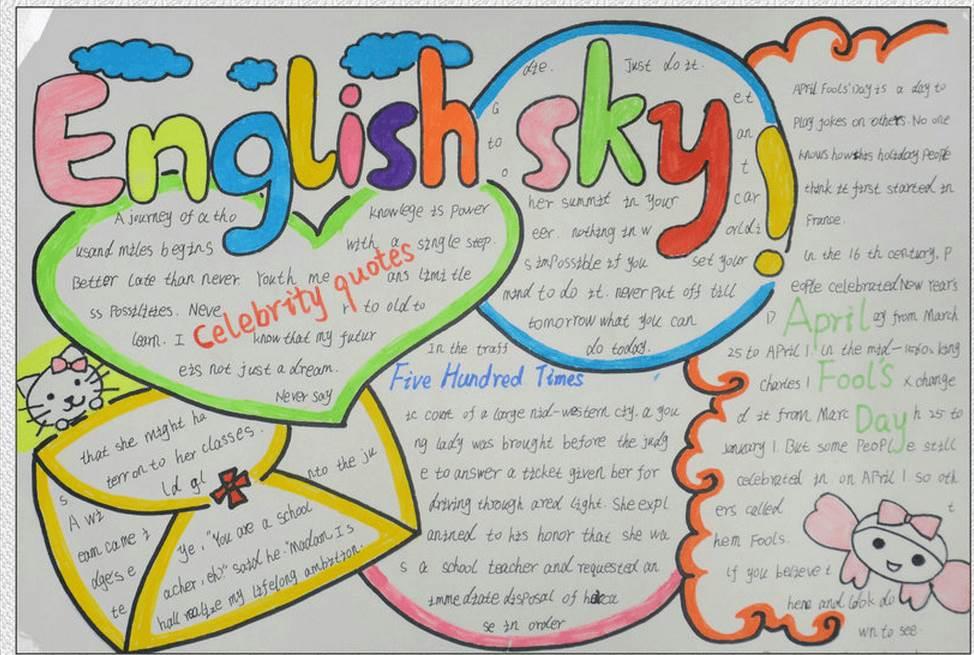 English sky!
A journey of a tho
usand miles begins
with a single step.
knowlege is power
Better late than never. Youth me
ans limi tle
ss Possilities. Neve
r to old to
learn. I
know that my futur
e is not just a dream.
Never say
Celebrity quotes
die.
Just do it.
G
et
to
an
o
t
her summit in your
car
eer. nothing in w
orld i
s impossible if you
set your
mind to do it. never put off till
tomorrow what you can
do today.
Five Hundred Times
In the traff
ic court of a large mid-western city. a you
ng lady was brought before the judg
e to answer a ticket given her for
driving through a red light. She expl
anined to his honor that she wa
s a school teacher and requested an
immediate disposal of
se in order
that she might ha
s
ten on to her classes.
A wi
ld gl
eam came i
nto the ju
dge's e
ye, "You are a school
te
acher, eh?" said he. "Madam I s
hall realize my lifelong ambition.
April Fool's Day
APril Fools' Day is a day to
Play jokes on others. No one
knows how this holiday PeoPle
think it first started in
Franse.
In the 16 th century, P
eoPle celebrated New Year's
D
ay from March
25 to APril 1. In the mid-1560s king
charles I
x change
d it from Marc
h 25 to
January 1. But some PeoPl
e still
celebrated in on APril 1 so oth
ers called
t
hem Fools.
If you believe t
hene and look do
wn to see